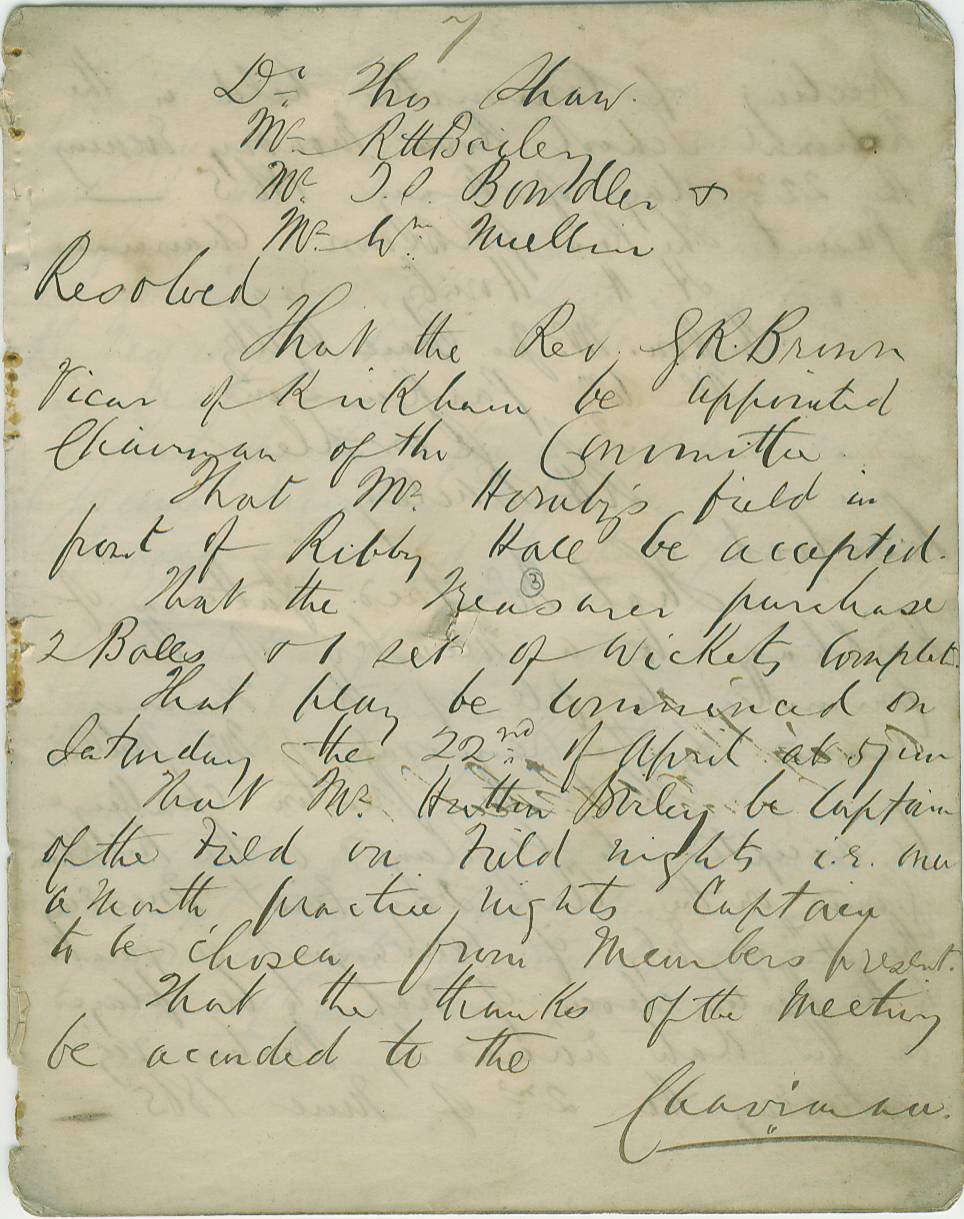 7
Dr. Thos Shaw.
Mr. R H Bailey
Mr. T. S. Bowdler &
Mr. Wm. Mullin
Resolved
That the Rev. G R. Brown
Vicar of Kirkham be appointed
Chairman of the Committee.
That Mr. Hornby's field in
front of Ribby Hall be accepted.
3
That the Treasurer purchase
2 Balls & 1 set of Wickets Complete.
That play be commenced on
Saturday the 22nd of April at 5 pm
That Mr. Hutton Birley be Captain
of the Field on Field nights i.e. once
a Month practice nights Captain
to be chosen from Members present.
That the thanks of the Meeting
be accorded to the
Chairman.